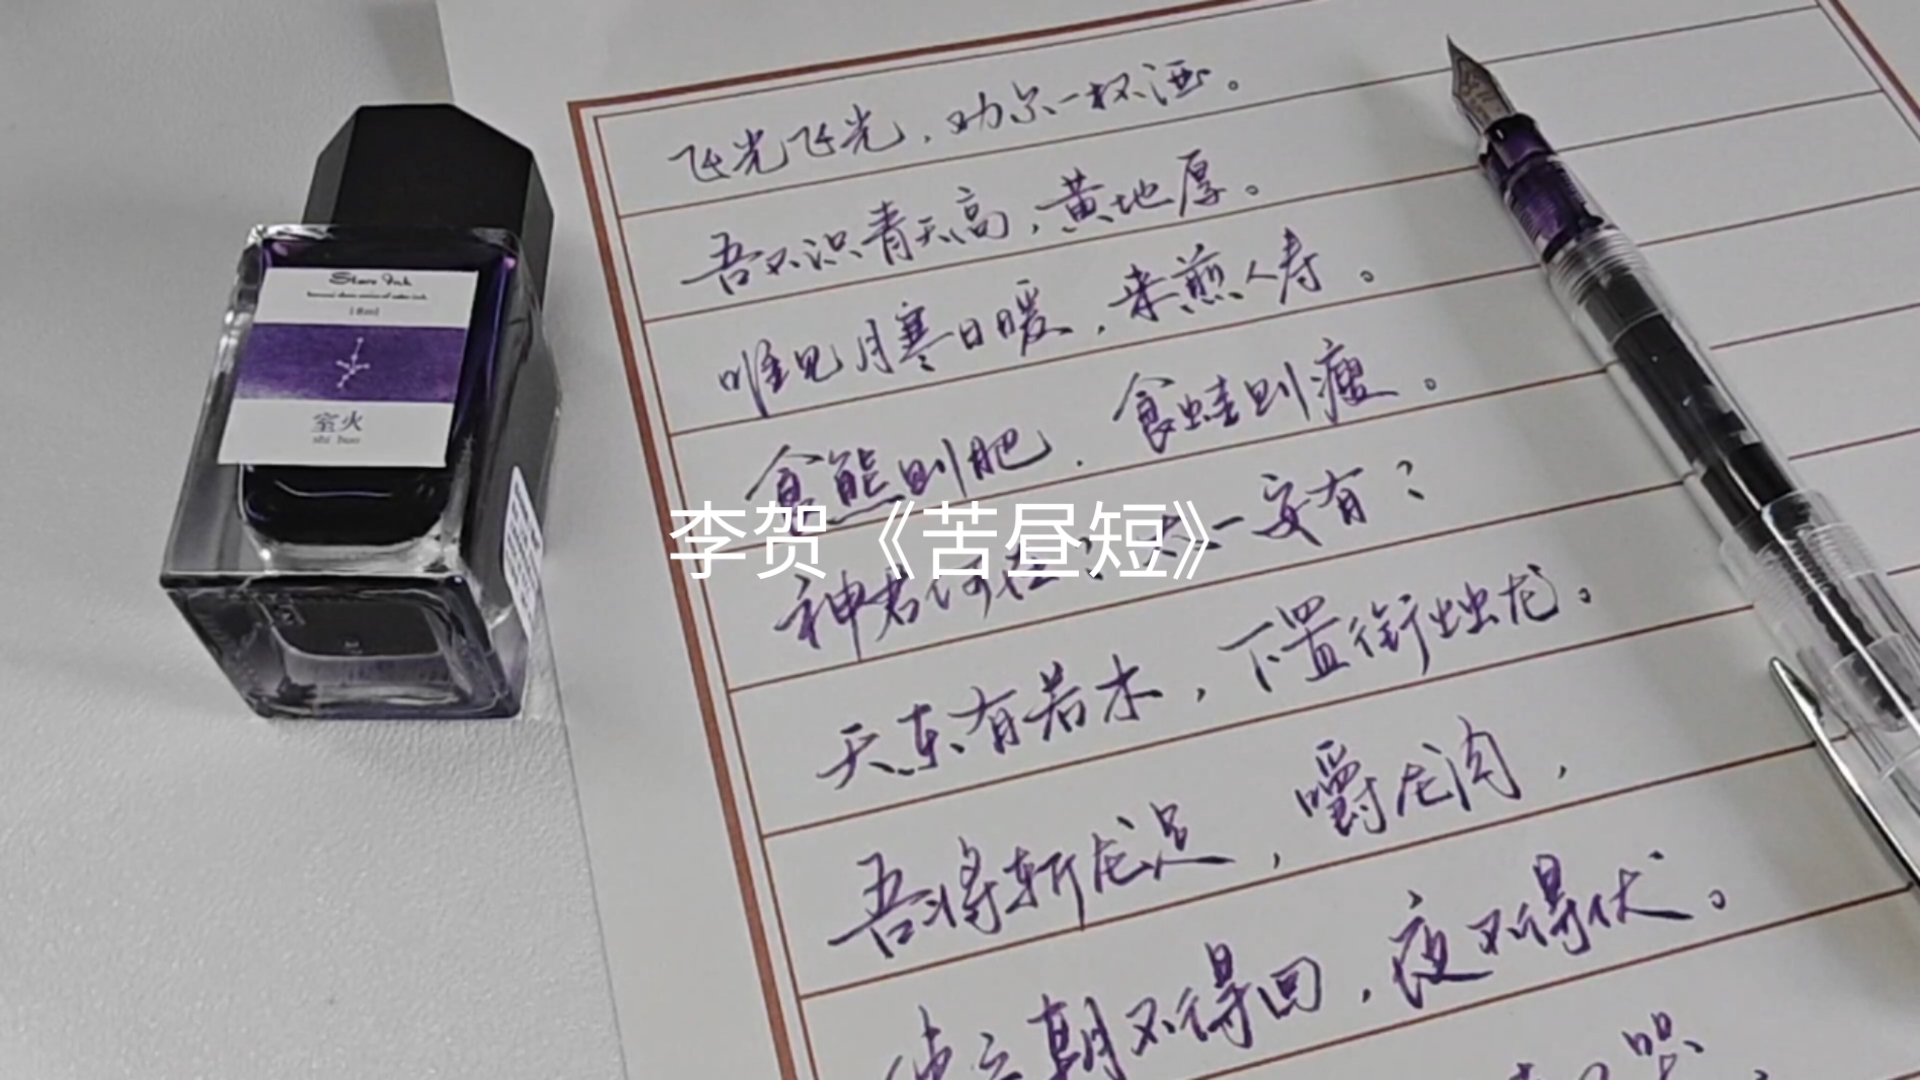 Stars Ink
18ml
室火
shi huo
飞光飞光，劝尔一杯酒。
吾不识青天高，黄地厚。
唯见月寒日暖，来煎人寿。
食熊则肥，食蛙则瘦。
李贺《苦昼短》
神君何在？太一安有？
天东有若木，下置衔烛龙。
吾将斩龙足，嚼龙肉，
使之朝不得回，夜不得伏。
哭